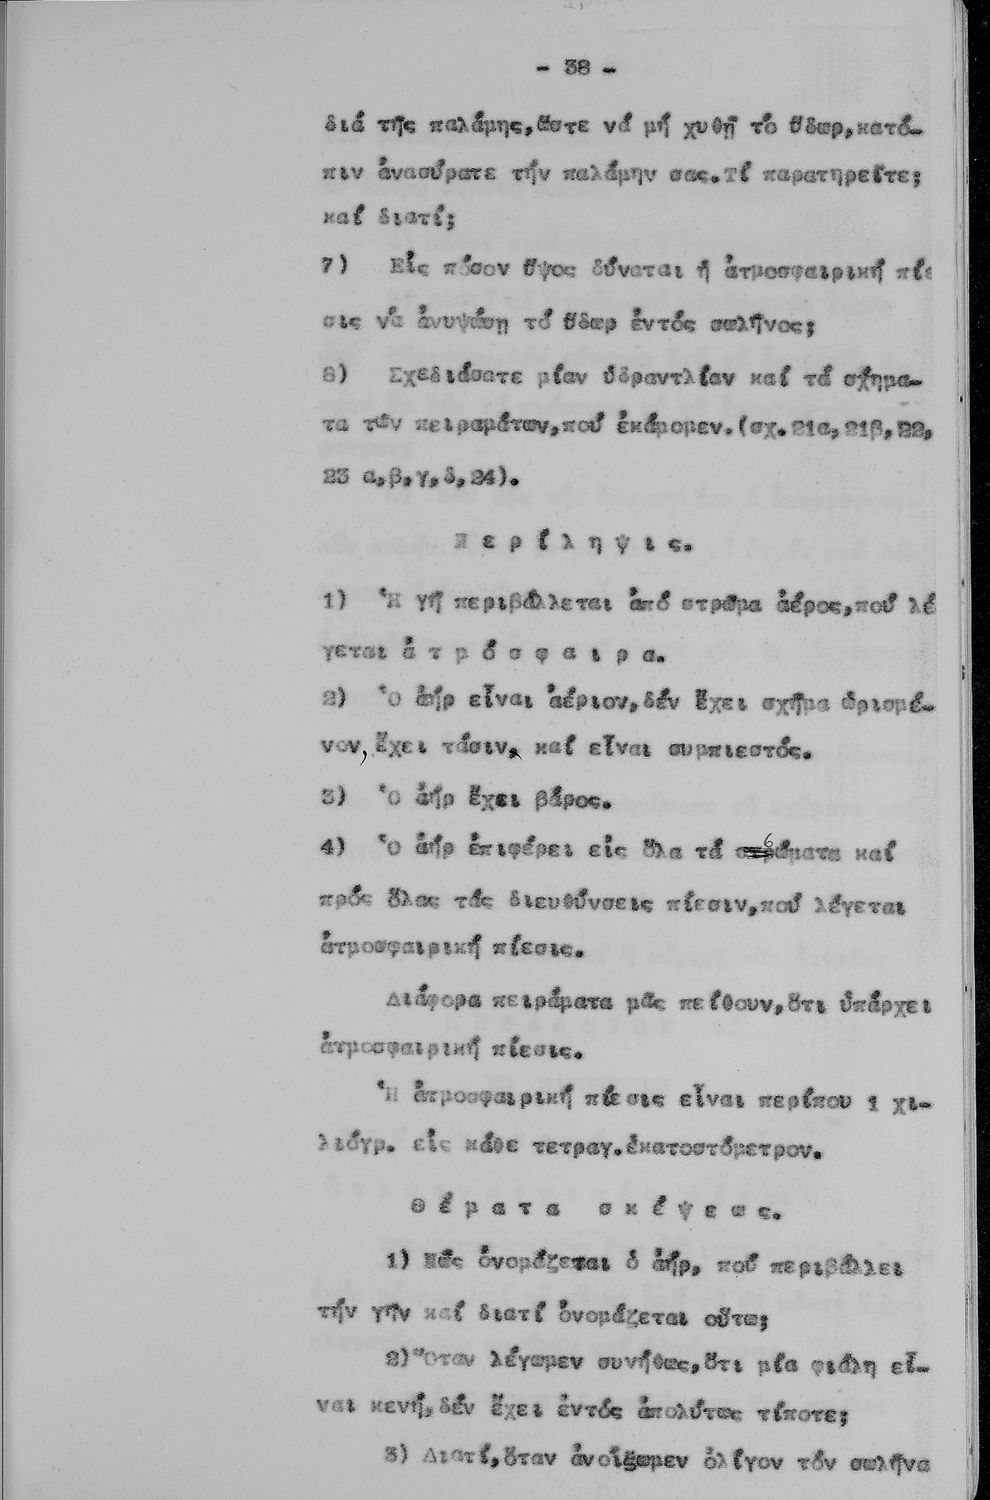 - 38 -
διά τῆς παλάμης,ὥστε νά μή χυθῇ τό ὕδωρ,κατό-
πιν ἀνασύρατε τήν παλάμην σας.Τί παρατηρεῖτε;
καί διατί;
7) Εἰς πόσον ὕψος δύναται ἡ ἀτμοσφαιρική πίε
σις νά ἀνυψώσῃ τό ὕδωρ ἐντός σωλῆνος;
8) Σχεδιάσατε μίαν ὑδραντλίαν καί τά σχήμα-
τα τῶν πειραμάτων,πού ἐκάμομεν.(σχ.21α,21β,22,
23 α,β,γ,δ,24).
Π ε ρ ί λ η ψ ι ς.
1) Ἡ γῆ περιβάλλεται ἀπό στρῶμα ἀέρος,πού λέ
γεται ἀ τ μ ό σ φ α ι ρ α.
2) Ὁ ἀήρ εἶναι ἀέριον,δέν ἔχει σχῆμα ὡρισμέ-
νον, ἔχει τάσιν, καί εἶναι συμπιεστός.
3) Ὁ ἀήρ ἔχει βάρος.
4) Ὁ ἀήρ ἐπιφέρει εἰς ὅλα τά σώματα καί
πρός ὅλας τάς διευθύνσεις πίεσιν,πού λέγεται
ἀτμοσφαιρική πίεσις.
Διάφορα πειράματα μᾶς πείθουν,ὅτι ὑπάρχει
ἀτμοσφαιρική πίεσις.
Ἡ ἀτμοσφαιρική πίεσις εἶναι περίπου 1 χι-
λιόγρ. εἰς κάθε τετραγ.ἑκατοστόμετρον.
Θ έ μ α τ α σ κ έ ψ ε ω ς.
1) Πῶς ὀνομάζεται ὁ ἀήρ, πού περιβάλλει
τήν γῆν καί διατί ὀνομάζεται οὕτω;
2)Ὅταν λέγωμεν συνήθως,ὅτι μία φιάλη εἶ-
ναι κενή,δέν ἔχει ἐντός ἀπολύτως τίποτε;
3) Διατί,ὅταν ἀνοίξωμεν ὀλίγον τόν σωλῆνα